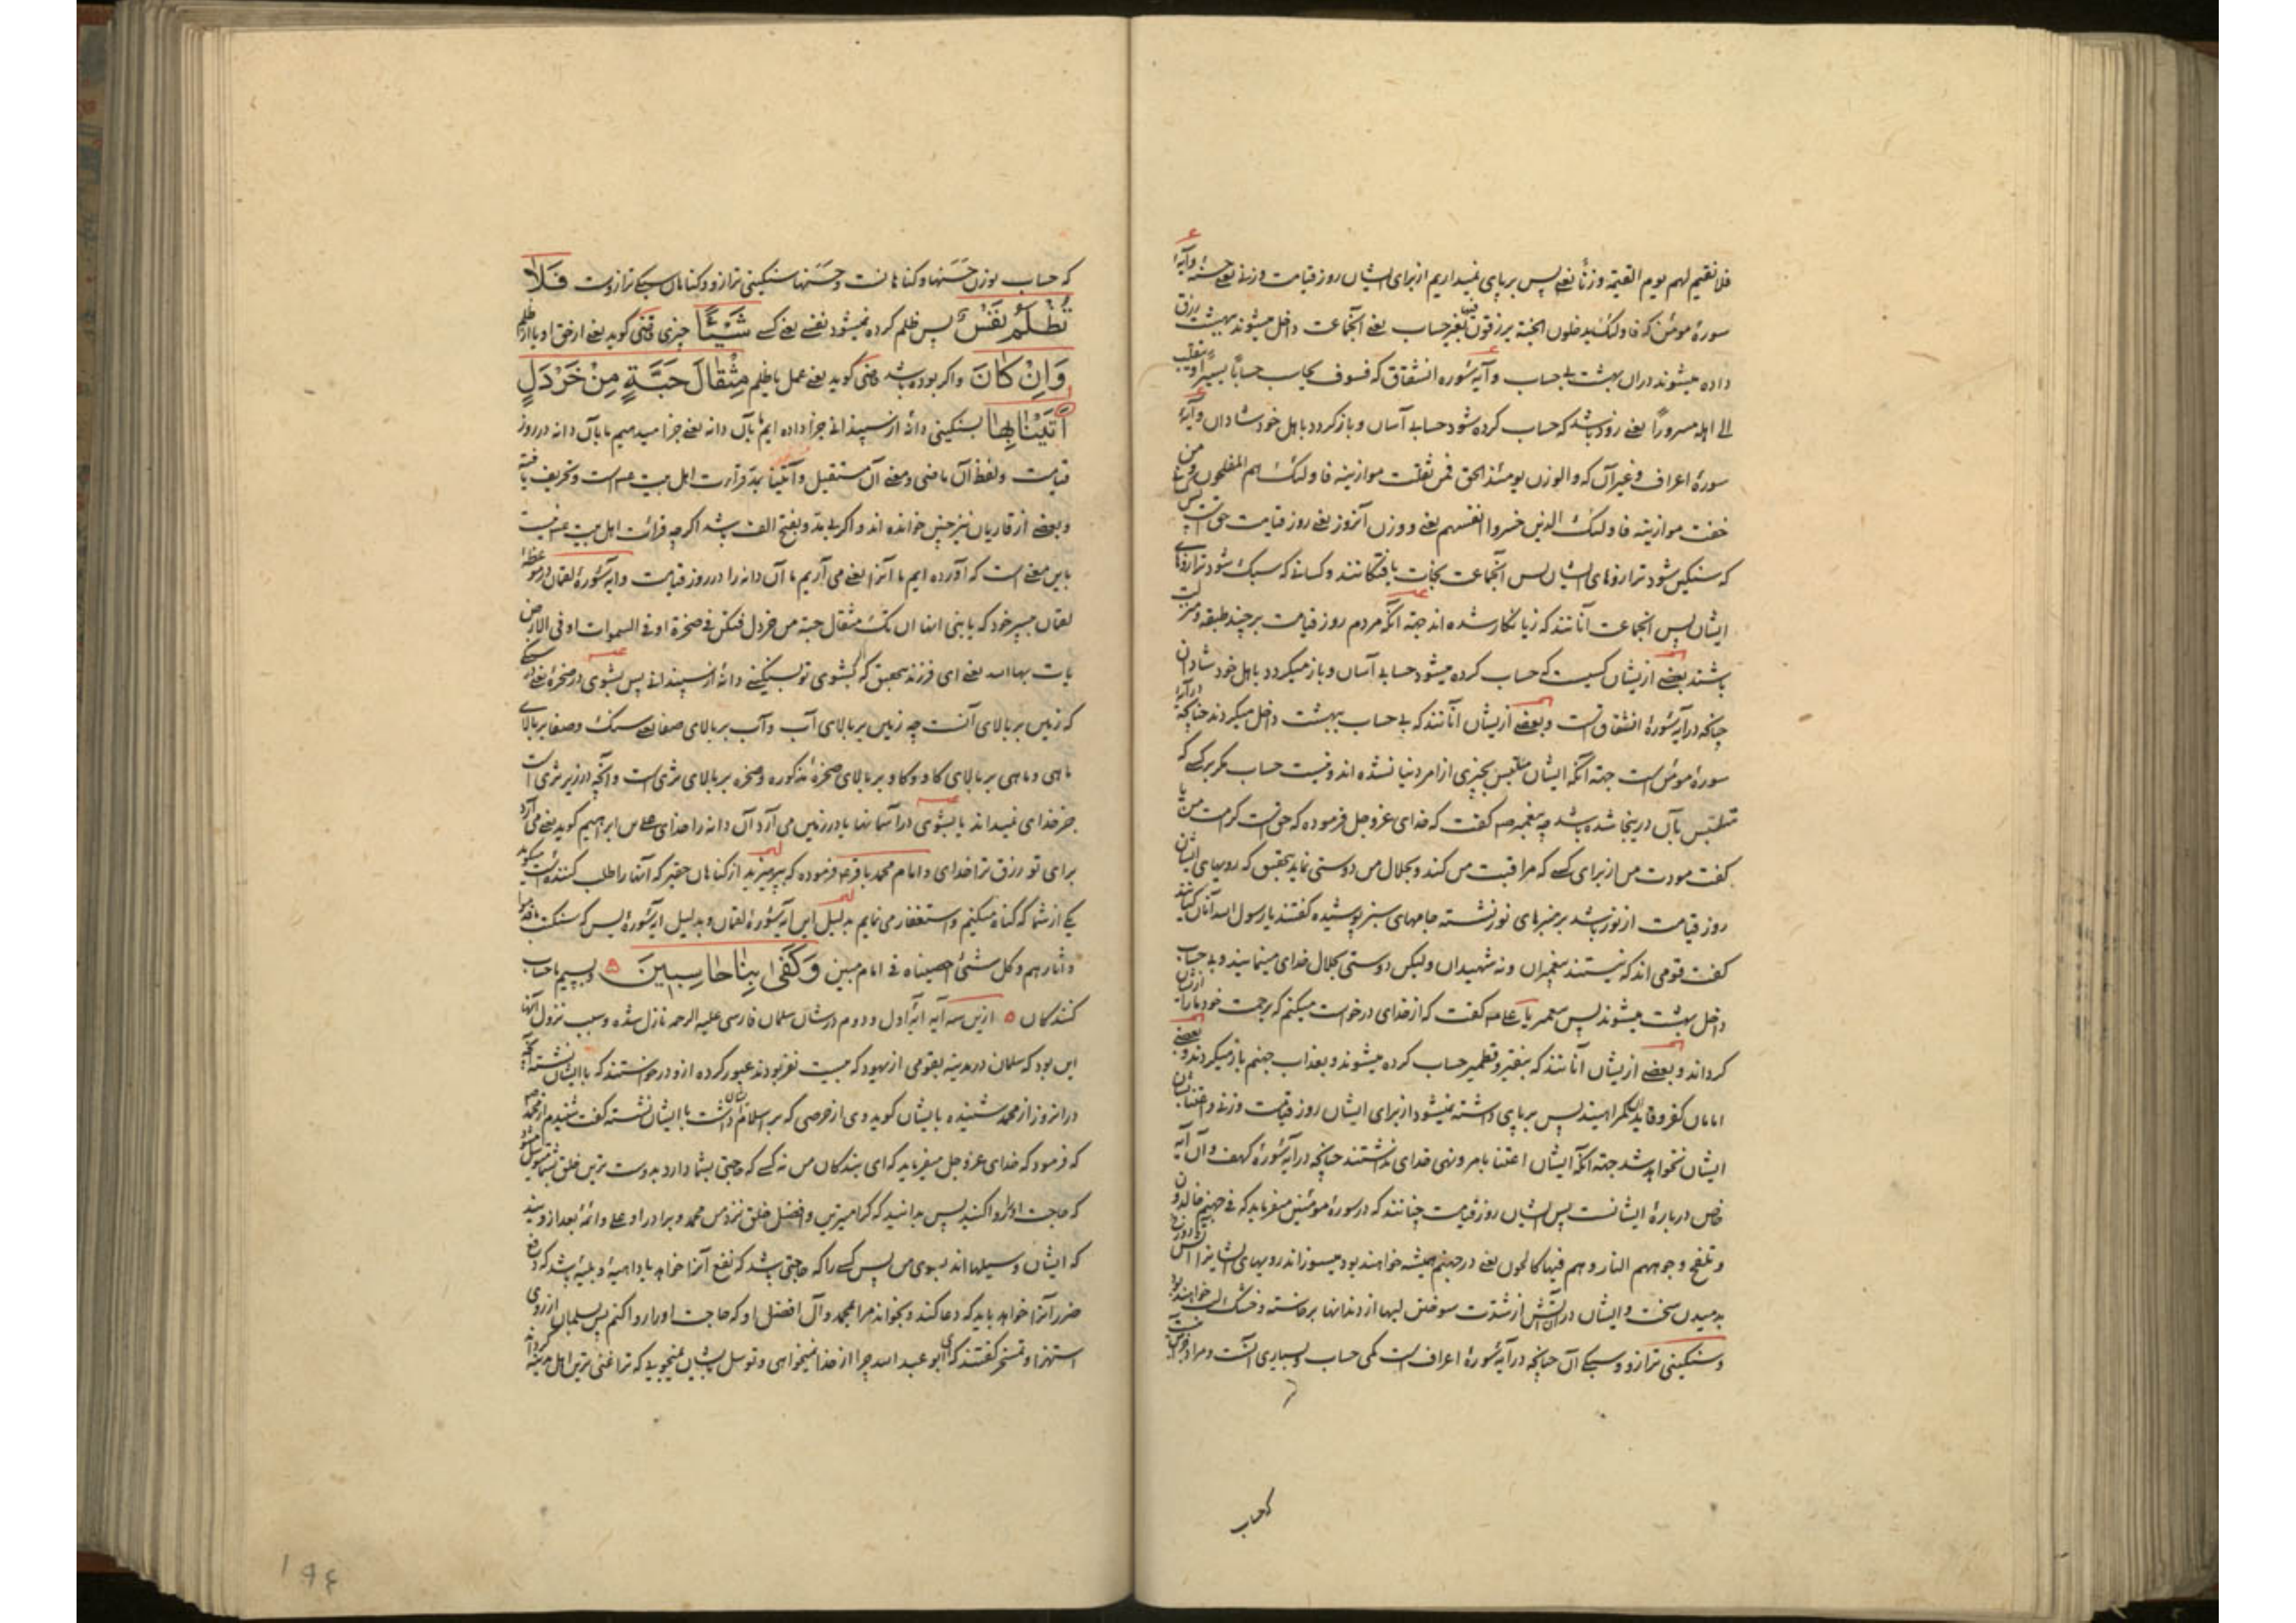 فلا نقیم لهم یوم القیمة وزنا یعنی پس برپای نمیداریم از برای ایشان روز قیامت وزنی یعنی حسنه وآیهٔ
سورهٔ مومن که فاولئک یدخلون الجنة یرزقون فیها بغیر حساب یعنی آنجماعت داخل میشوند بهشت رزق
داده میشوند دران بهشت بی حساب و آیهٔ سوره انشقاق که فسوف یحاسب حسابا یسیرا و ینقلب
الی اهله مسرورا یعنی زود باشد که حساب کرده شود حسابی آسان و بازکردد باهل خود شادان وآیهٔ
سورهٔ اعراف و غیرآن که والوزن یومئذ الحق فمن ثقلت موازینه فاولئک هم المفلحون ومن
خفت موازینه فاولئک الذین خسروا انفسهم یعنی و وزن آنروز یعنی روز قیامت حق است پس
که سنکین شود ترازوهای ایشان پس آنجماعت نجات یافتکانند وکسانی که سبک شود ترازوهای
ایشان پس آنجماعت آنانند که زیانکار شده اند جهة آنکه مردم روز قیامت برچند طبقه ومنزلت
باشند بعضی ازیشان کسیست که حساب کرده میشود حسابی آسان و باز میکردد باهل خود شادان
چنانچه درآیهٔ سورهٔ انشقاق است و بعضی ازیشان آنانند که بی حساب ببهشت داخل میکردند چنانچه درآیهٔ
سورهٔ مومن است جهة آنکه ایشان متلبس بچیزی از امر دنیا نشده اند ونیست حساب مکر برکسی که
متلبس بآن درینجا شده باشد چه پیغمبر صه کفت که خدای عزوجل فرموده که حق است کرامت من یا
کفت مودت من از برای کسی که مراقبت من کند وبجلال من دوستی نماید بتحقیق که رویهای ایشان
روز قیامت از نور باشد بر منبرهای نور نشسته جامهای سبز پوشیده کفتند یا رسول الله آنان کیانند
کفت قومی اند که نیستند پیغمبران ونه شهیدان ولیکن دوستی بجلال خدای مینمایند وبی حساب
داخل بهشت میشوند پس پیغمبر یا علی صه کفت که از خدای درخواست میکنم که برحمت خود مارا ازیشان
کرداند وبعضی ازیشان آنانند که بنقیر وقطمیر حساب کرده میشوند وبعذاب جهنم باز میکردند و بعضی
امامان کفر وقاید کمراهیند پس برپای داشته نمیشود از برای ایشان روز قیامت وزنی واعتنا بشان
ایشان نخواهد شد جهة آنکه ایشان اعتنا بامر ونهی خدای نداشتند چنانچه درآیهٔ سورهٔ کهف وآن آیه
خاص دربارهٔ ایشانست پس ایشان روز قیامت چنانند که در سورهٔ مومنین میفرماید که فی جهنم خالدون
وتلفح وجوههم النار وهم فیها کالحون یعنی در جهنم همیشه خواهند بود میسوزاند رویهای ایشانرا آتش دوزخ
بدمیدن سخت وایشان در آن آتش از شدت سوختن لبها از دندانها برخاسته وخشک لب خواهند بود
وسنکینی ترازو وسبکی آن چنانچه درآیهٔ سورهٔ اعراف است کمی حساب وبسیاری آنست ومراد
که حساب
که حساب بوزن حسنها وکناهانست وحسنها سنکینی ترازو وکناهان سبکی ترازوست فَلَا
تُظْلَمُ نَفْسٌ پس ظلم کرده نمیشود نفسی یعنی کسی شَیْئًا چیزی قاضی کوید یعنی از حق او یا از ظلم
وَاِنْ کَانَ واکر بوده باشد قاضی کوید یعنی عمل یا ظلم مِثْقَالَ حَبَّةٍ مِنْ خَرْدَلٍ
اٰتَیْنَا بِهَا بسنکینی دانهٔ از سپندانی جزا داده ایم ما بآن دانه یعنی جزا میدهیم ما بآن دانه در روز
قیامت ولفظ آن ماضی ومعنی آن مستقبل وآتینا بمد قراءت اهل بیت عم است وتحریف یافته
وبعضی از قاریان نیز چنین خوانده اند واکر بی مد وبفتح الف باشد اکرچه قرائت اهل بیت عم نیست
باین معنی است که آورده ایم ما آنرا یعنی می آریم ما آن دانه را در روز قیامت وآیهٔ سورهٔ لقمان در موعظهٔ
لقمان بپسر خود که یا بنی انها ان تک مثقال حبة من خردل فتکن فی صخرة او فی السموات او فی الارض
یات بها الله یعنی ای فرزند بتحقیق که اگر بشوی تو بسنکینی دانهٔ از سپندانی پس بشوی در صخرهٔ یعنی سنکی
که زمین بر بالای آنست چه زمین بر بالای آب وآب بر بالای صفا یعنی سنک وصفا بر بالای
ماهی وماهی بر بالای کاو وکاو بر بالای صخرهٔ مذکوره وصخره بر بالای ثری است وآنچه در زیر ثری است
جز خدای نمیداند یا بشوی در آسمانها یا در زمین می آرد آن دانه را خدای علی بن ابراهیم کوید یعنی می آرد
برای تو رزق ترا خدای وامام محمد باقر ع فرموده که بپرهیزید از کناهان حقیر که آنها را طلب کننده است میکوید
یکی از شما که کناه میکنم واستغفار می نمایم بدلیل این آیهٔ سورهٔ لقمان وبدلیل آیهٔ سورهٔ یس که سنکتب ما قدموا
وآثارهم وکل شیٔ احصیناه فی امام مبین وَکَفٰی بِنَا حَاسِبِینَ ۵ وبسیم ما حساب
کنندکان ۵ ازین سه آیه آیهٔ اول ودوم در شان سلمان فارسی علیه الرحمه نازل شده وسبب نزول آنها
این بود که سلمان در مدینه بقومی از یهود که بیست نفر بودند عبور کرده ازو درخواستند که با ایشان نشسته آنچه
درانروز از محمد شنیده با ایشان کوید وی از حرصی که بر اسلام ایشان داشت با ایشان نشسته کفت شنیدم از محمد صه
که فرمود که خدای عزوجل میفرماید که ای بندکان من نه کسی که حاجتی بشما دارد بدوست ترین خلق بشما متوسل میشود
که حاجت او را روا کنید پس بدانید که کرامیترین وافضل خلق نزد من محمد وبرادر او علی وائمهٔ بعد ازویند
که ایشان وسیلها اند بسوی من پس کسی را که حاجتی باشد که نفع آنرا خواهد یا داهیهٔ وبلیهٔ باشد که دفع
ضرر آنرا خواهد باید که دعا کند وبخواند مرا بمحمد وآل افضل او که حاجت او را روا کنم پس بسلمان از روی
استهزا وتمسخر کفتند که ای ابو عبد الله چرا از خدا نمیخواهی وتوسل بایشان نمیجویی که ترا غنی ترین اهل مدینه کرداند
۱۹۴